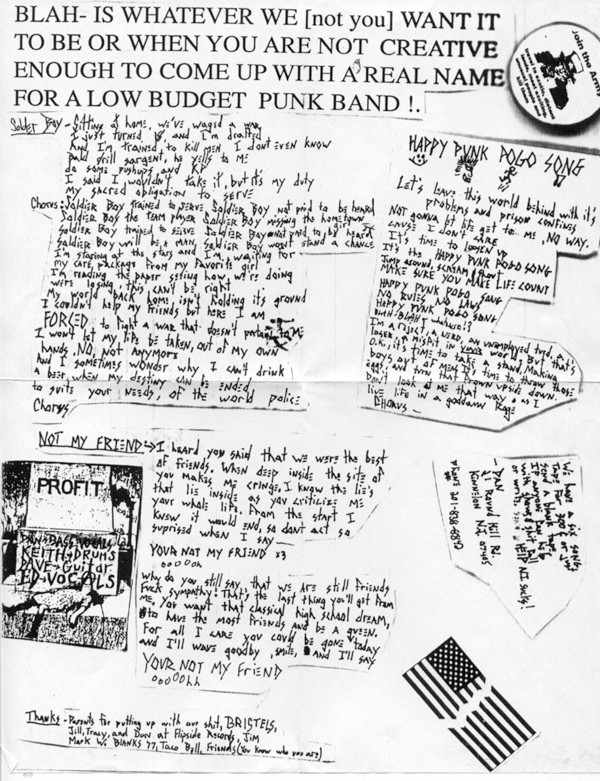 BLAH- IS WHATEVER WE [not you] WANT IT
TO BE OR WHEN YOU ARE NOT CREATIVE
ENOUGH TO COME UP WITH A REAL NAME
FOR A LOW BUDGET PUNK BAND !.
Join the Army
Soldier Boy - Sitting at home, we've waged a war
I just turned 18, and I'm drafted
And, I'm trained, to kill men, I dont even know
bald drill sargent, he yells to me
do some pushups, and KP
I said I wouldn't take it, but it's my duty
my sacred obligation to serve
Chorus: Soldier Boy trained to serve Soldier Boy not paid to be heard
Soldier Boy the team player Soldier Boy missing the hometown
Soldier Boy trained to serve Soldier Boy not paid to be heard
Soldier Boy will be a man, Soldier Boy wont stand a chance
I'm staring at the stars and I'm waiting for
my care package from my favorite girl
I'm reading the paper seeing how we're doing
were losing this can't be right
My world back home isn't holding its ground
I couldn't help my friends but here I am
FORCED to fight a war that doesn't pertain to Me
I wont let my life be taken, out of my own
hands, NO, not anymore
And I sometimes wonder why I can't drink
a beer, when my destiny can be ended
to suite your needs, of the world police
Chorus
HAPPY PUNK POGO SONG
Let's leave this world behind with it's
problems and prison confines
NOT gonna let life get to me, NO WAY.
CAUSE I DON'T CARE
It's time to loosen up
It's the HAPPY PUNK POGO SONG
Jump around, scream & shout
MAKE SURE YOU MAKE LIFE COUNT
HAPPY PUNK POGO SONG
NO RULES NO LAWS
HAPPY PUNK POGO SONG
BLAH-BLAH
I'm a reject, a nerd, an unemployed turd, a
it's a misfit in your world But that's
O.k., it's time to take a stand, Making
boys out of men, it's time to throw those
eggs, and turn that frown upside down.
Don't look at me that way as I
live life in a goddamn Rage
CHORUS -
NOT MY FRIEND → I heard you said that we were the best
of friends. When deep inside the site of
you makes me cringe, I know the lie's
that lie inside as you criticize me
your whole life. From the start I
knew it would end, so dont act so
suprised when I say
YOUR NOT MY FRIEND x3
ooOooh
why do you still say, that we are still friends
Fuck sympathy! That's the last thing you'll get from
me, You want that classical high school dream,
to have the most friends and be a queen.
For all I care you could be gone today
and I'll wave goodby, smile, and I'll say
YOUR NOT MY FRIEND
ooOOohh
PROFIT
DAN+BASS-VOCALS
KEITH+DRUMS
DAVE-Guitar
ED-VOCALS
We have a six song
Tape for
- DAN
21 Round Hill Rd.
Kinnelon NJ 07405
PHONE 201-838-6840
Thanks - Parents for putting up with our shit, BRISTELS,
Jill, Tracy, and Duw at Flipside Records, Jim
Mark W. BLANKS 77, Taco Bell, Friends (You know who you are)